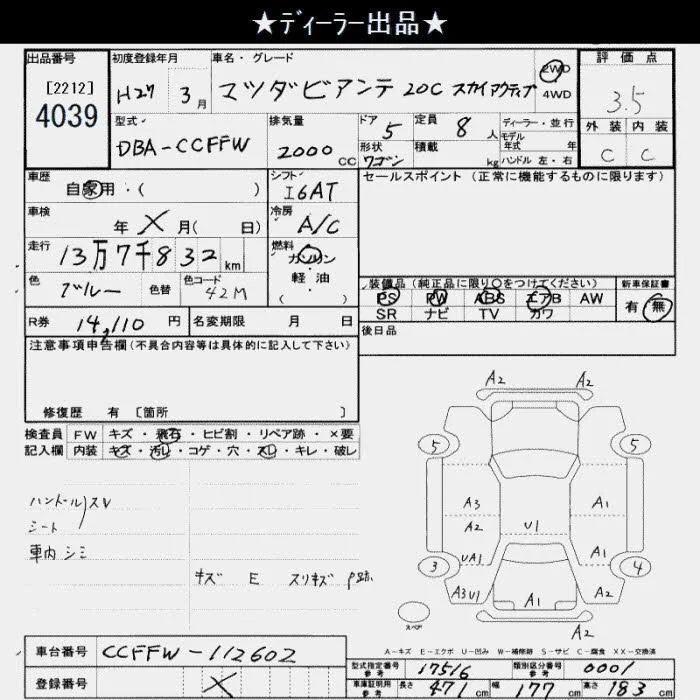 ★ディーラー出品★
出品番号 初度登録年月 車名・グレード 評価点
[2212] 4039 H27 3月 マツダビアンテ 20C スカイアクティブ 2WD 4WD 3.5
型式 排気量 ドア 定員 ディーラー・並行 外装 内装
DBA-CCFFW 2000CC 5 8人 モデル年式 年 C C
形状 ワゴン 積載 kg ハンドル 左・右
車歴 自家用・( ) シフト I6AT セールスポイント(正常に機能するものに限ります)
車検 年 X 月( 日) 冷房 A/C
走行 13万7千832km 燃料 ガソリン
軽・油
( )
色 ブルー 色替 色コード 42M
装備品(純正品に限り○をつけてください) 新車保証書
PS PW ABS エアB AW 有・無
SR ナビ TV カワ
R券 14,110円 名変期限 月 日 後日品
注意事項申告欄(不具合内容等は具体的に記入して下さい)
修復歴 有 〔箇所 〕
検査員 FW キズ・飛石・ヒビ割・リペア跡・×要
記入欄 内装 キズ・汚レ・コゲ・穴・スレ・キレ・破レ
A2 A2
5 5
ハンドルスレ
シート
車内シミ
A3 A1
A2 U1
UA1 A1
3 4
A3U1 A1 A2
キズ E スリキズ P跡
A2
スペア
A-キズ E-エクボ U-凹み W-補修跡 S-サビ C-腐食 XX-交換済
車台番号 CCFFW-112602
登録番号 X
型式指定番号 参考 17516 類別区分番号 参考 0001
車庫証明用 参考 長さ 471cm 幅 177cm 高さ 183cm